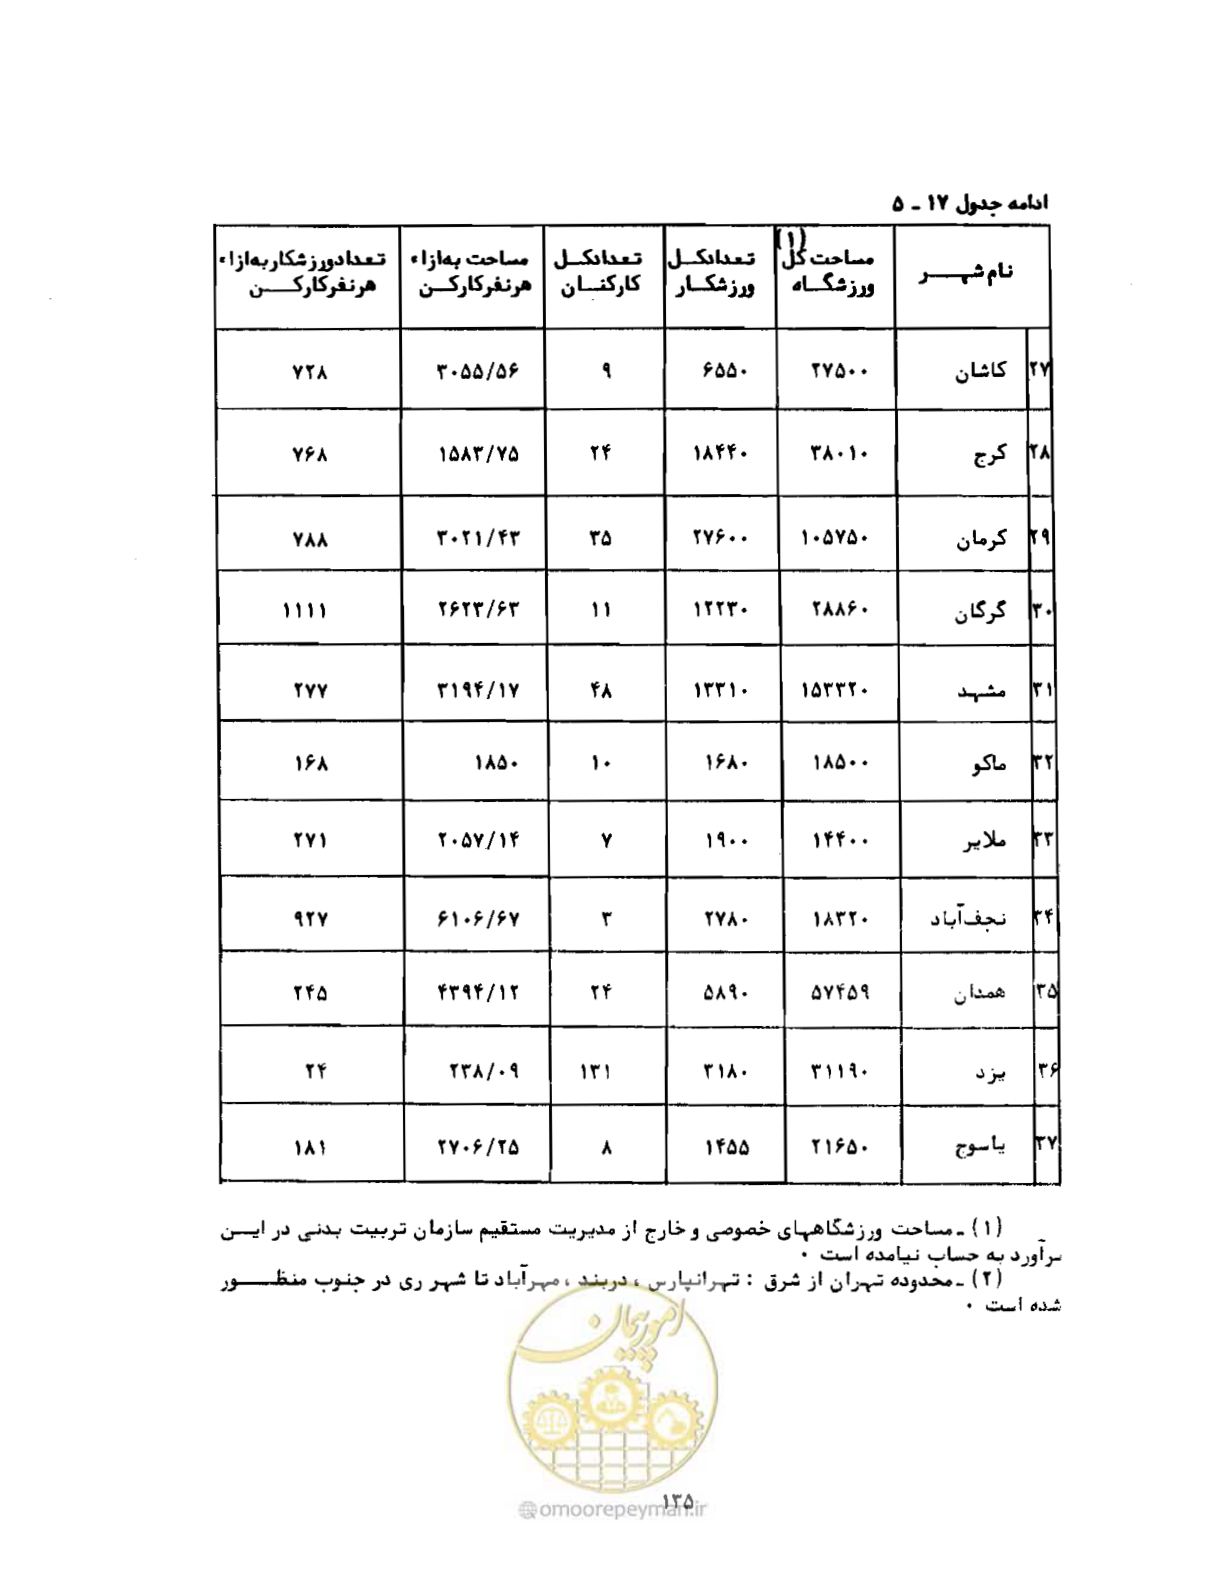 ادامه جدول ۱۷ - ۵
نام شهر مساحت کل (۱) ورزشگاه تعدادکل ورزشکار تعدادکل کارکنان مساحت به‌ازاء هرنفرکارکن تعدادورزشکار به‌ازاء هرنفرکارکن
۲۷ کاشان ۲۷۵۰۰ ۶۵۵۰ ۹ ۳۰۵۵/۵۶ ۷۲۸
۲۸ کرج ۳۸۰۱۰ ۱۸۴۴۰ ۲۴ ۱۵۸۳/۷۵ ۷۶۸
۲۹ کرمان ۱۰۵۷۵۰ ۲۷۶۰۰ ۳۵ ۳۰۲۱/۴۳ ۷۸۸
۳۰ گرگان ۲۸۸۶۰ ۱۲۲۳۰ ۱۱ ۲۶۲۳/۶۳ ۱۱۱۱
۳۱ مشهد ۱۵۳۳۲۰ ۱۳۳۱۰ ۴۸ ۳۱۹۴/۱۷ ۲۷۷
۳۲ ماکو ۱۸۵۰۰ ۱۶۸۰ ۱۰ ۱۸۵۰ ۱۶۸
۳۳ ملایر ۱۴۴۰۰ ۱۹۰۰ ۷ ۲۰۵۷/۱۴ ۲۷۱
۳۴ نجف‌آباد ۱۸۳۲۰ ۲۷۸۰ ۳ ۶۱۰۶/۶۷ ۹۲۷
۳۵ همدان ۵۷۴۵۹ ۵۸۹۰ ۲۴ ۴۳۹۴/۱۲ ۲۴۵
۳۶ یزد ۳۱۱۹۰ ۳۱۸۰ ۱۳۱ ۲۳۸/۰۹ ۲۴
۳۷ یاسوج ۲۱۶۵۰ ۱۴۵۵ ۸ ۲۷۰۶/۲۵ ۱۸۱
(۱) - مساحت ورزشگاههای خصوصی و خارج از مدیریت مستقیم سازمان تربیت بدنی در این
برآورد به حساب نیامده است .
(۲) - محدوده تهران از شرق : تهرانپارس ، دربند ، مهرآباد تا شهر ری در جنوب منظور
شده است .
امور پیمان
۱۳۵
@omoorepeyman.ir